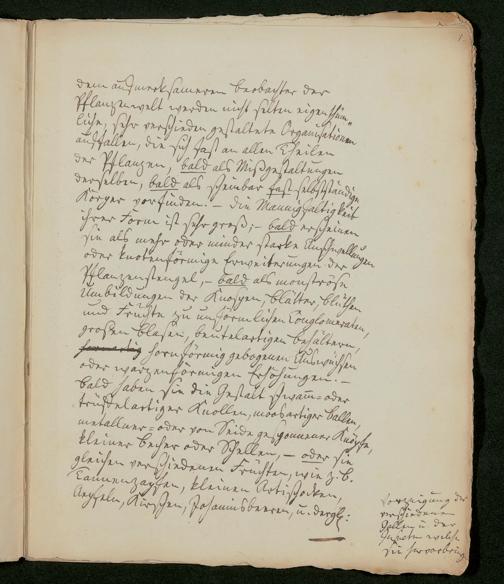 dem aufmerksameren Beobachter der
Pflanzenwelt werden nicht selten eigenthüm=
liche, sehr verschieden gestaltete Organisationen
auffallen, die sich fast an allen Theilen
der Pflanzen, bald als Mißgestaltungen
derselben, bald als scheinbar fast selbstständige
Körper vorfinden. – Die Mannigfaltigkeit
ihrer Form ist sehr groß; – bald erscheinen
sie als mehr oder minder starke Anschwellungen
oder knotenförmige Erweiterungen der
Pflanzenstengel, – bald als monströse
Umbildungen der Knospen, Blätter, Blüthen
und Früchte zu unförmlichen Conglomeraten,
großen Blasen, beutelartigen Behältern,
hornförmig gebogenen Auswüchsen
oder warzenförmigen Erhöhungen. –
Bald haben sie die Gestalt schwam= oder
trüffelartiger Knollen, moosartiger Ballen,
metallner= oder von Seide gesponnener Knöpfe,
kleiner Becher oder Schellen, – oder sie
gleichen verschiedenen Früchten, wie z.B.
Tannenzapfen, kleinen Artischocken,
Aepfeln, Kirschen, Johannisbeeren, u. dergl:
verschiedenen
Gallen u. der
Insecten welche
sie hervorbring